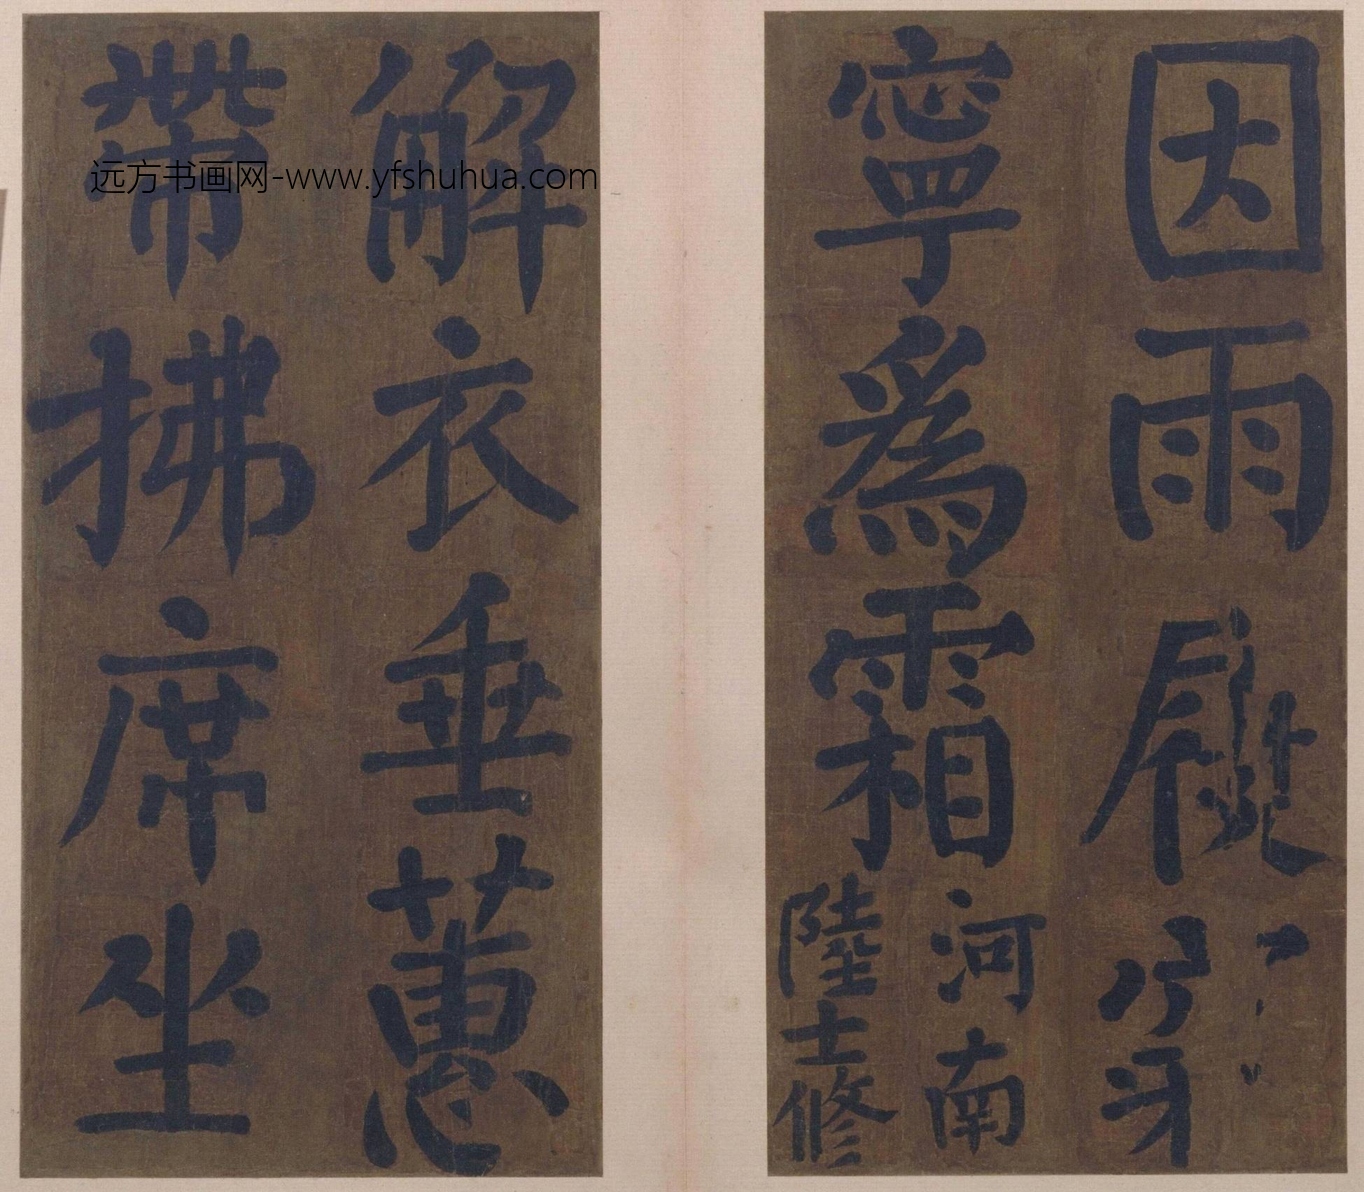 因雨履穿
寧爲霜
河南
陸士修
解衣垂蕙
帶拂席坐
远方书画网-www.yfshuhua.com